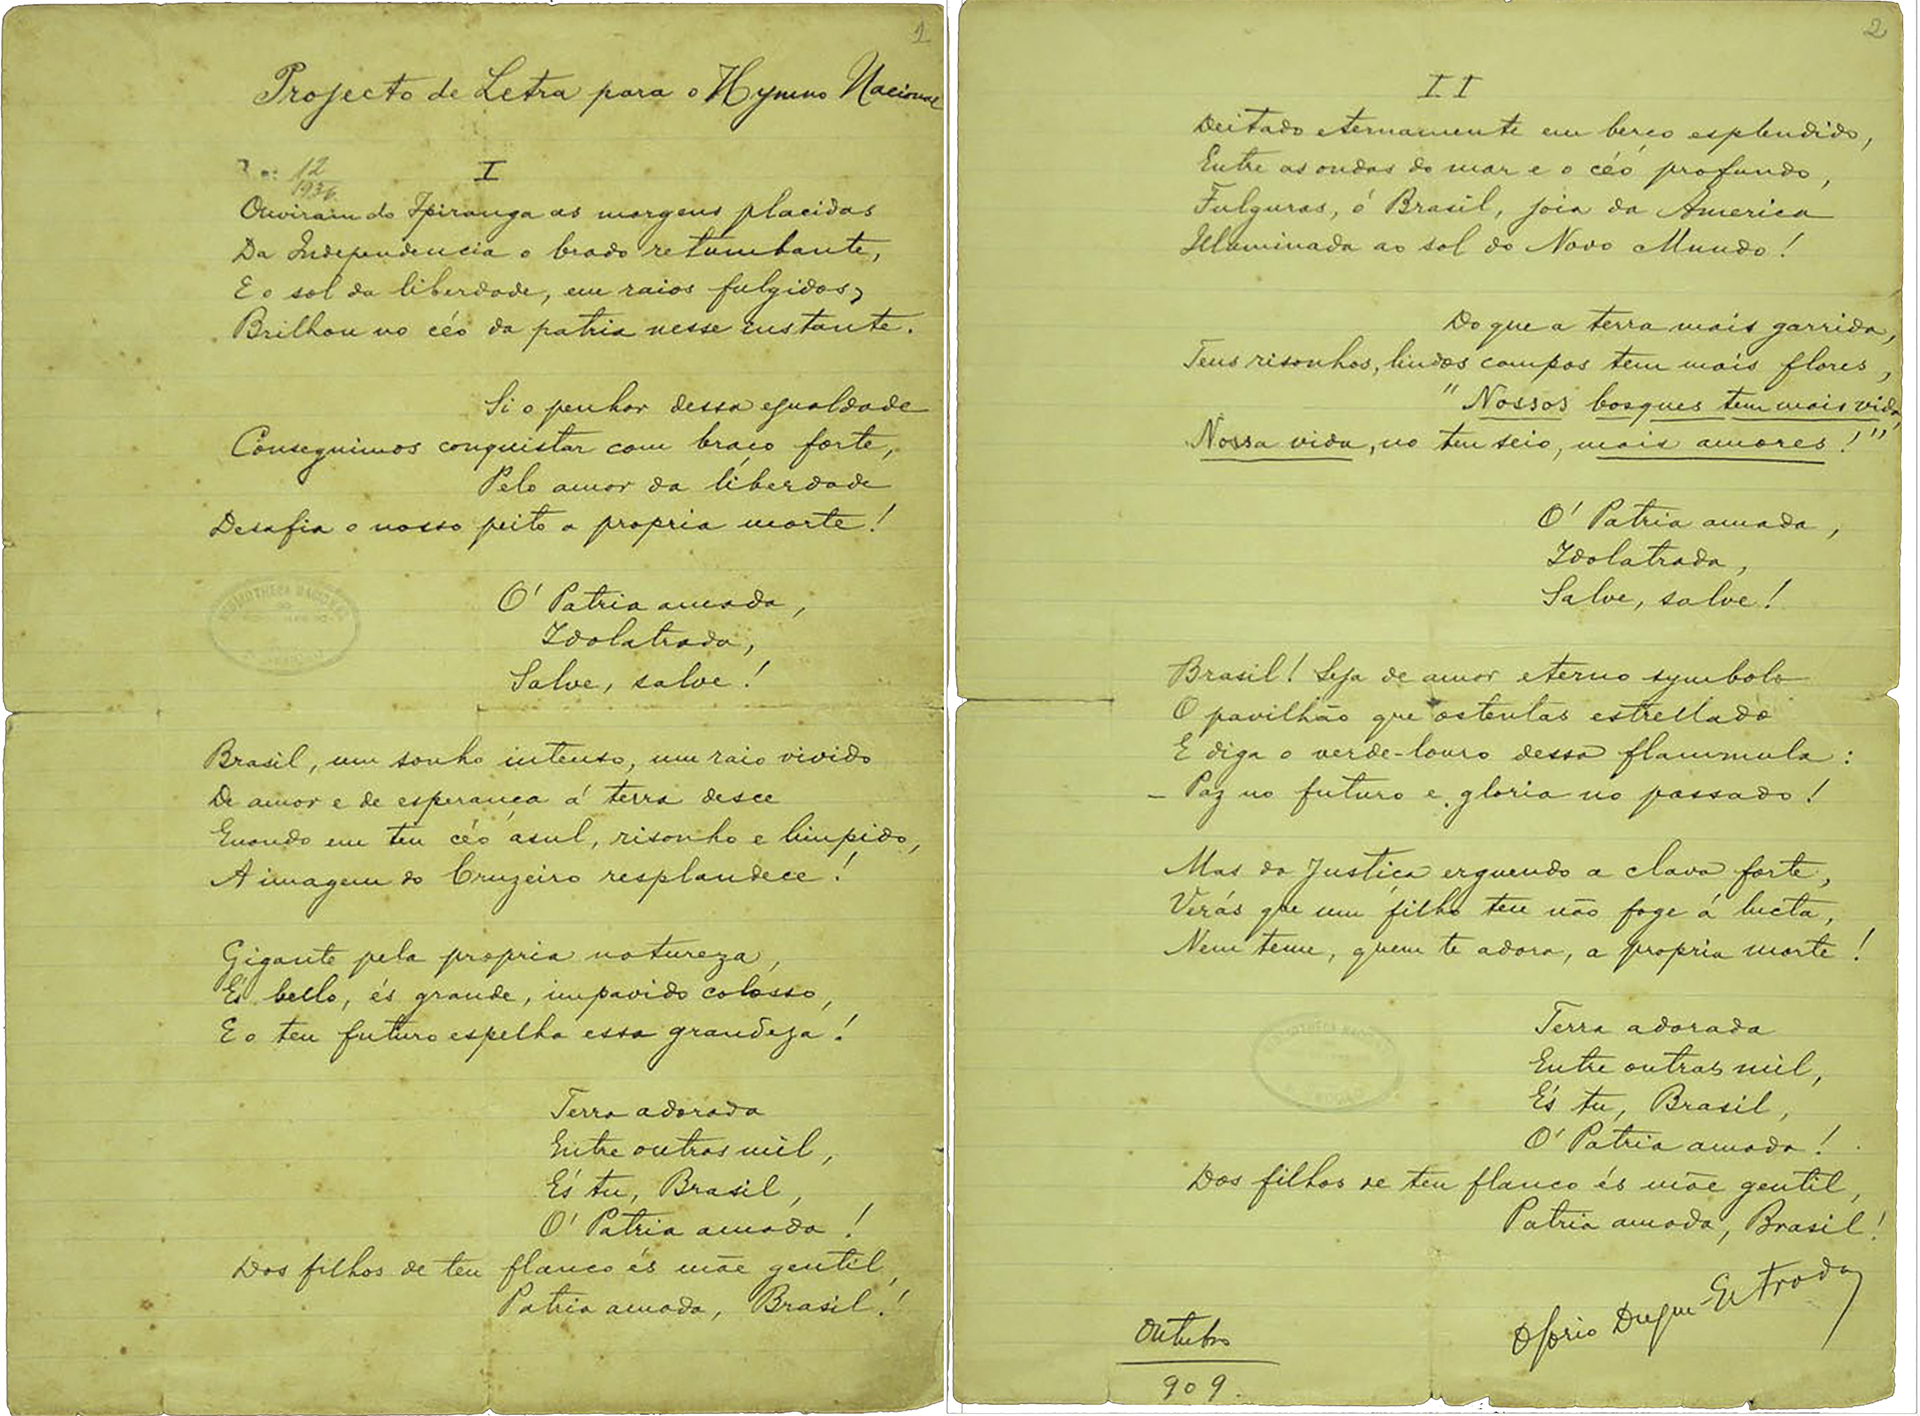 1
Projecto de Letra para o Hymno Nacional
12
1936
I
Ouviram do Ipiranga as margens placidas
Da Independencia o brado retumbante,
E o sol da liberdade, em raios fulgidos,
Brilhou no céo da patria nesse instante.
Si o penhor dessa egualdade
Conseguimos conquistar com braço forte,
Pelo amor da liberdade
Desafia o nosso peito a propria morte!
O' Patria amada,
Idolatrada,
Salve, salve!
Brasil, um sonho intenso, um raio vivido
De amor e de esperança á terra desce
Quando em teu céo asul, risonho e limpido,
A imagem do Cruzeiro resplandece!
Gigante pela propria natureza,
És bello, és grande, impavido colosso,
E o teu futuro espelha essa grandeza!
Terra adorada
Entre outras mil,
És tu, Brasil,
O' Patria amada!
Dos filhos de teu flanco és mãe gentil,
Patria amada, Brasil!
2
II
Deitado eternamente em berço esplendido,
Entre as ondas do mar e o céo profundo,
Fulguras, ó Brasil, joia da America
Illuminada ao sol do Novo Mundo!
Do que a terra mais garrida,
Teus risonhos, lindos campos tem mais flores,
"Nossos bosques tem mais vida,
Nossa vida, no teu seio, mais amores!"
O' Patria amada,
Idolatrada,
Salve, salve!
Brasil! Seja de amor eterno symbolo
O pavilhão que ostentas estrellado
E diga o verde-louro dessa flammula:
– Paz no futuro e gloria no passado!
Mas da Justiça erguendo a clava forte,
Verás que um filho teu não foge á lucta,
Nem teme, quem te adora, a propria morte!
Terra adorada
Entre outras mil,
És tu, Brasil,
O' Patria amada!
Dos filhos de teu flanco és mãe gentil,
Patria amada, Brasil!
Osorio Duque-Estrada
Outubro
909.